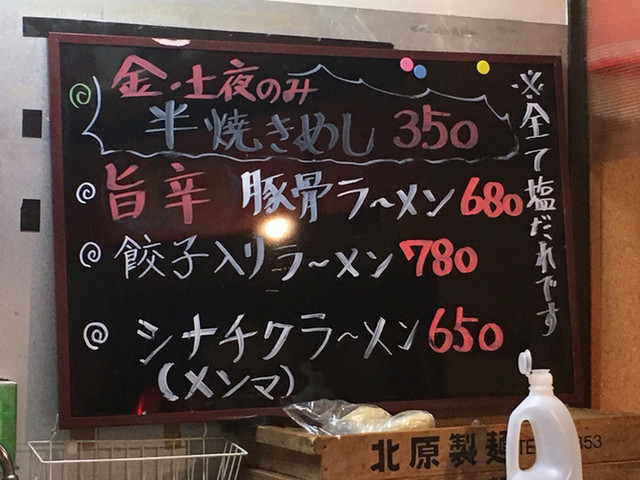 金・土夜のみ
半焼きめし 350
旨辛 豚骨ラ〜メン 680
餃子入りラ〜メン 780
シナチクラ〜メン 650
(メンマ)
※全て塩だれです
北原製麺